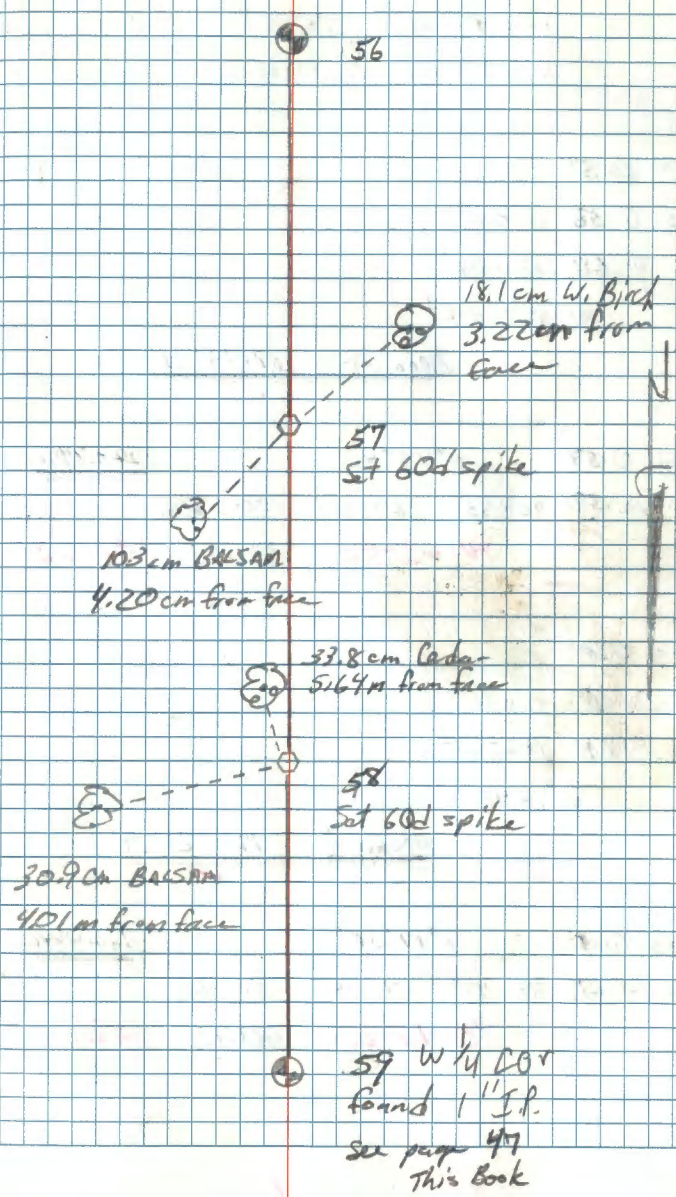 56
18.1 cm W. Birch
3.22cm from
face
57
Set 60d spike
10.3 cm BALSAM
4.20 cm from face
33.8 cm Cedar
5.64m from face
58
Set 60d spike
30.9 cm BALSAM
4.01 m from face
N
59 W 1/4 COr
found 1" I.P.
See page 47
This Book